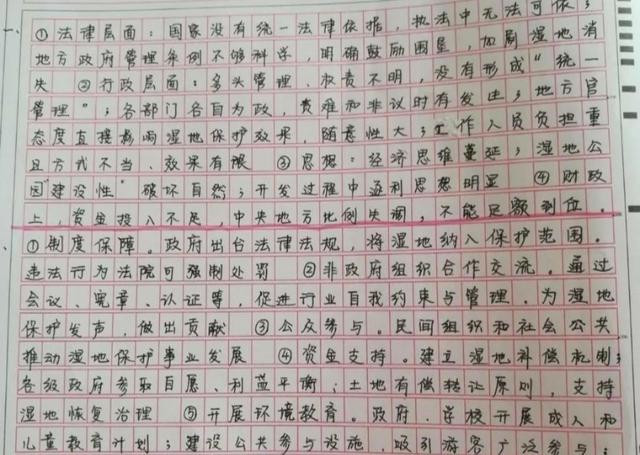 ①法律层面：国家没有统一法律依据，执法中无法可依；
地方政府管理条例不够科学，明确鼓励围垦，加剧湿地消
失 ②行政层面：多头管理、权责不明，没有形成“统一
管理”；各部门各自为政，责难和非议时有发生；地方官
态度直接影响湿地保护效果，随意性大；工作人员负担重
且方式不当、效果有限 ③思想：经济思维蔓延；湿地公
园“建设性”破坏自然；开发过程中逐利思想明显 ④财政
上，资金投入不足，中央地方比例失调，不能足额到位。
①制度保障。政府出台法律法规，将湿地纳入保护范围。
违法行为法院可强制处罚 ②非政府组织合作交流。通过
会议、宪章、认证等，促进行业自我约束与管理。为湿地
保护发声，做出贡献 ③公众参与。民间组织和社会公共
推动湿地保护事业发展 ④资金支持。建立湿地补偿机制；
各级政府参取自愿、利益平衡、土地有偿转让原则，支持
湿地恢复治理 ⑤开展环境教育。政府、学校开展成人和
儿童教育计划；建设公共参与设施，吸引游客广泛参与；